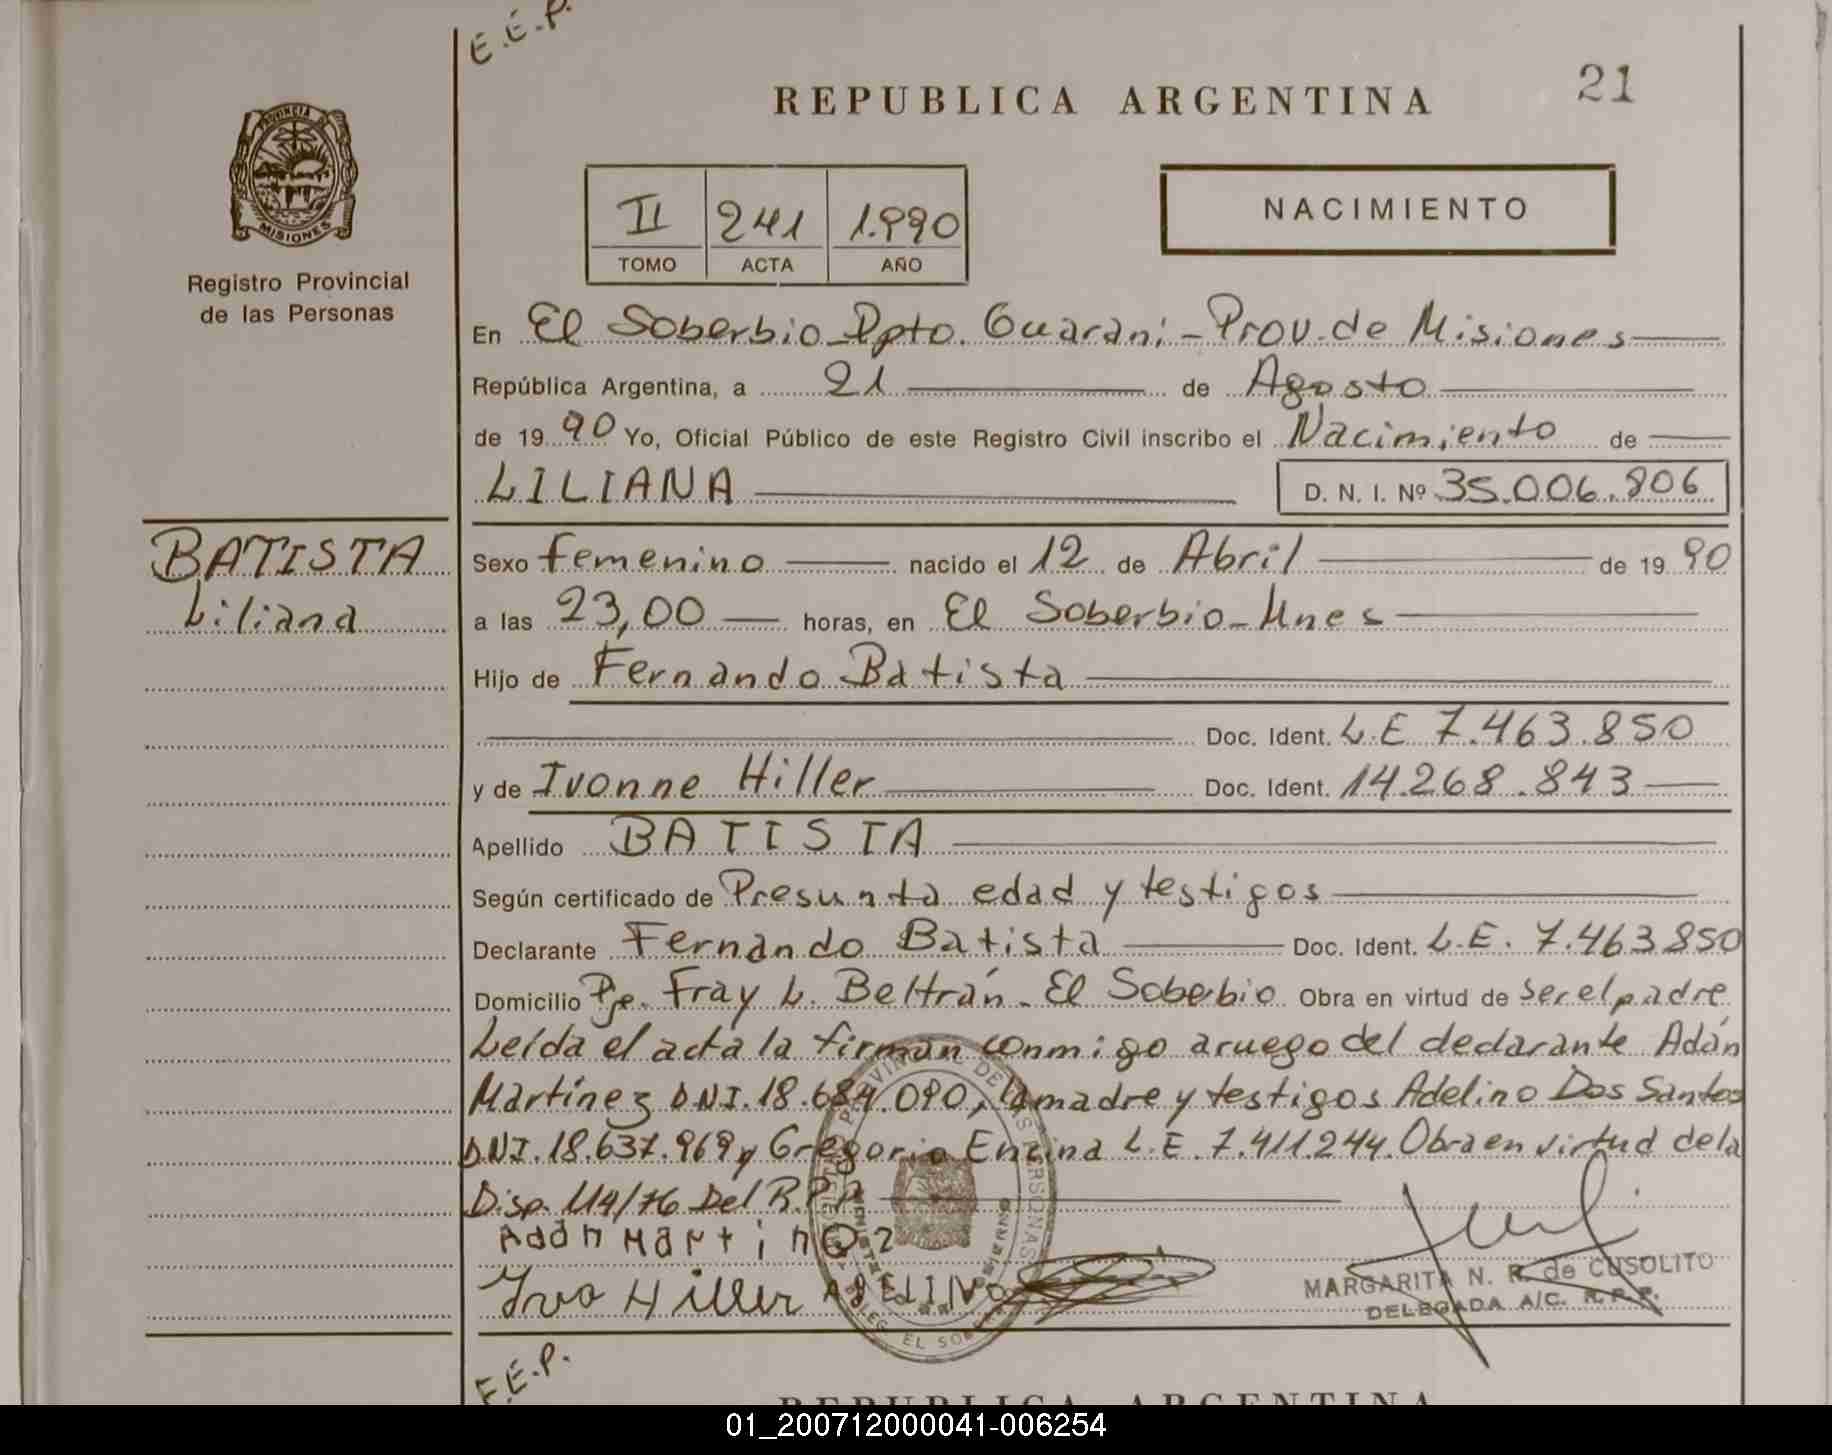 E.E.P.
REPUBLICA ARGENTINA
21
PROVINCIA DE
MISIONES
Registro Provincial
de las Personas
II 241 1.990
TOMO ACTA AÑO
NACIMIENTO
En El Soberbio-Dpto. Guaraní-Prov. de Misiones
República Argentina, a 21 de Agosto
de 1990 Yo, Oficial Público de este Registro Civil inscribo el Nacimiento de
LILIANA
D. N. I. Nº 35.006.806
BATISTA
Liliana
Sexo femenino nacido el 12 de Abril de 1990
a las 23,00 horas, en El Soberbio-Mnes
Hijo de Fernando Batista
Doc. Ident. L.E 7.463.850
y de Ivonne Hiller Doc. Ident. 14.268.843
Apellido BATISTA
Según certificado de Presunta edad y testigos
Declarante Fernando Batista Doc. Ident. L.E. 7.463850
Domicilio Pje. Fray L. Beltrán - El Soberbio Obra en virtud de ser el padre
Leída el acta la firman conmigo a ruego del declarante Adán
Martínez DNI.18.684.090, la madre y testigos Adelino Dos Santos
DNI.18.637.969 y Gregorio Encina L.E. 7.411.244. Obra en virtud de la
Disp. 114/76 Del R.P.P.
Adán Martinez
Ivo Hiller ADELINO
MARGARITA N. R. de CUSOLITO
DELEGADA A/C. R.P.P.
E.E.P.
REPUBLICA ARGENTINA
01_200712000041-006254